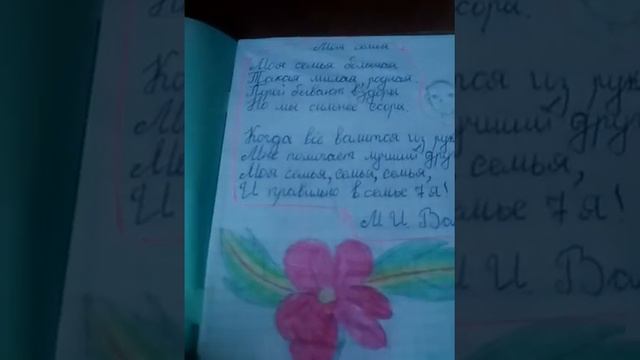 Моя семья
Моя семья большая
Такая милая родная.
Порой бывают вздоры
Но мы сильнее ссоры.
Когда всё валится из рук
Мне помогает лучший друг
Моя семья, семья, семья,
И правильно в семье 7 я!
М И.